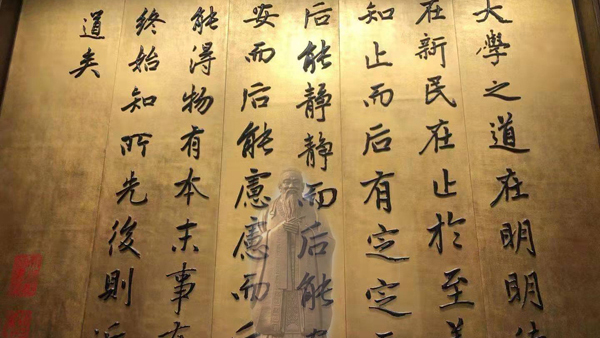 大學之道在明明德
在新民在止於至善
知止而后有定定而
后能靜靜而后能安
安而后能慮慮而后
能得物有本末事有
終始知所先後則近
道矣